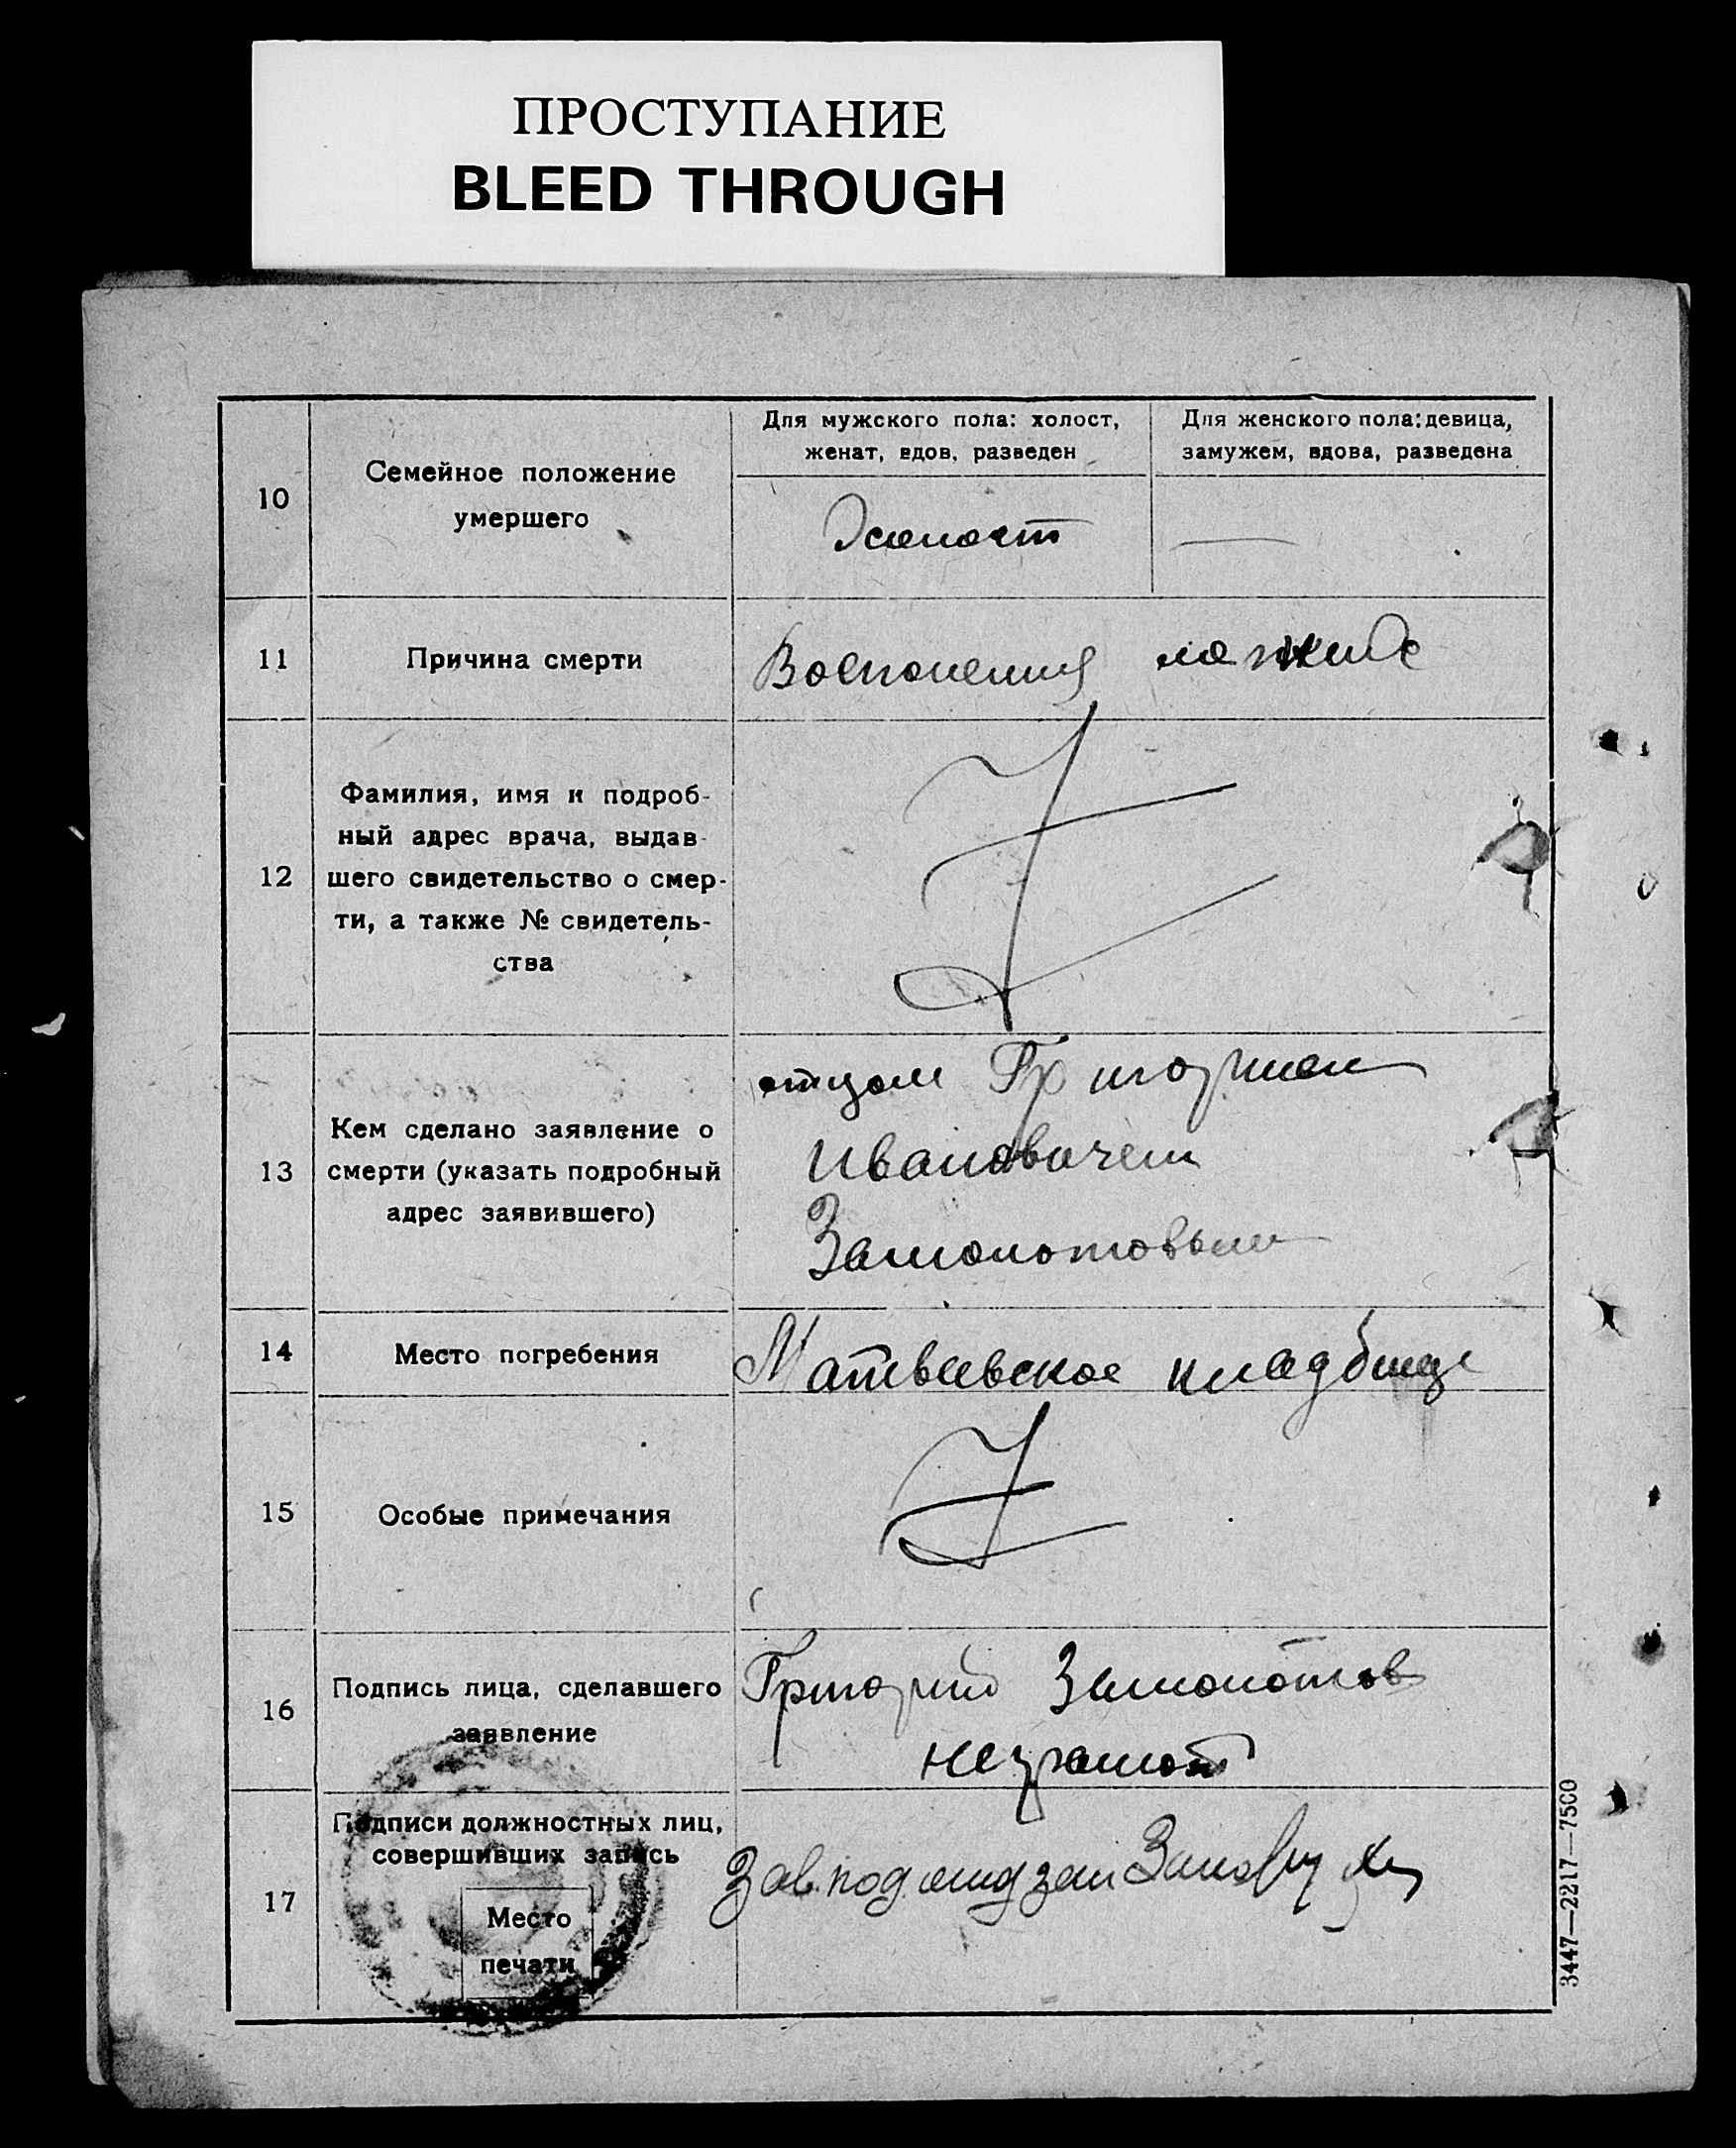 ПРОСТУПАНИЕ
BLEED THROUGH
10
Семейное положение
умершего
Для мужского пола: холост,
женат, вдов, разведен
Для женского пола: девица,
замужем, вдова, разведена
Холост
11
Причина смерти
Восполения
12
Фамилия, имя и подроб-
ный адрес врача, выдав-
шего свидетельство о смер-
ти, а также № свидетель-
ства
13
Кем сделано заявление о
смерти (указать подробный
адрес заявившего)
отцом Григорием
Ивановичем
Замолотовым
14
Место погребения
Матвеевское кладбище
15
Особые примечания
16
Подпись лица, сделавшего
заявление
Григорий Замолотов
неграмот
17
Подписи должностных лиц,
совершивших запись
Место
печати
3447—2217—7500